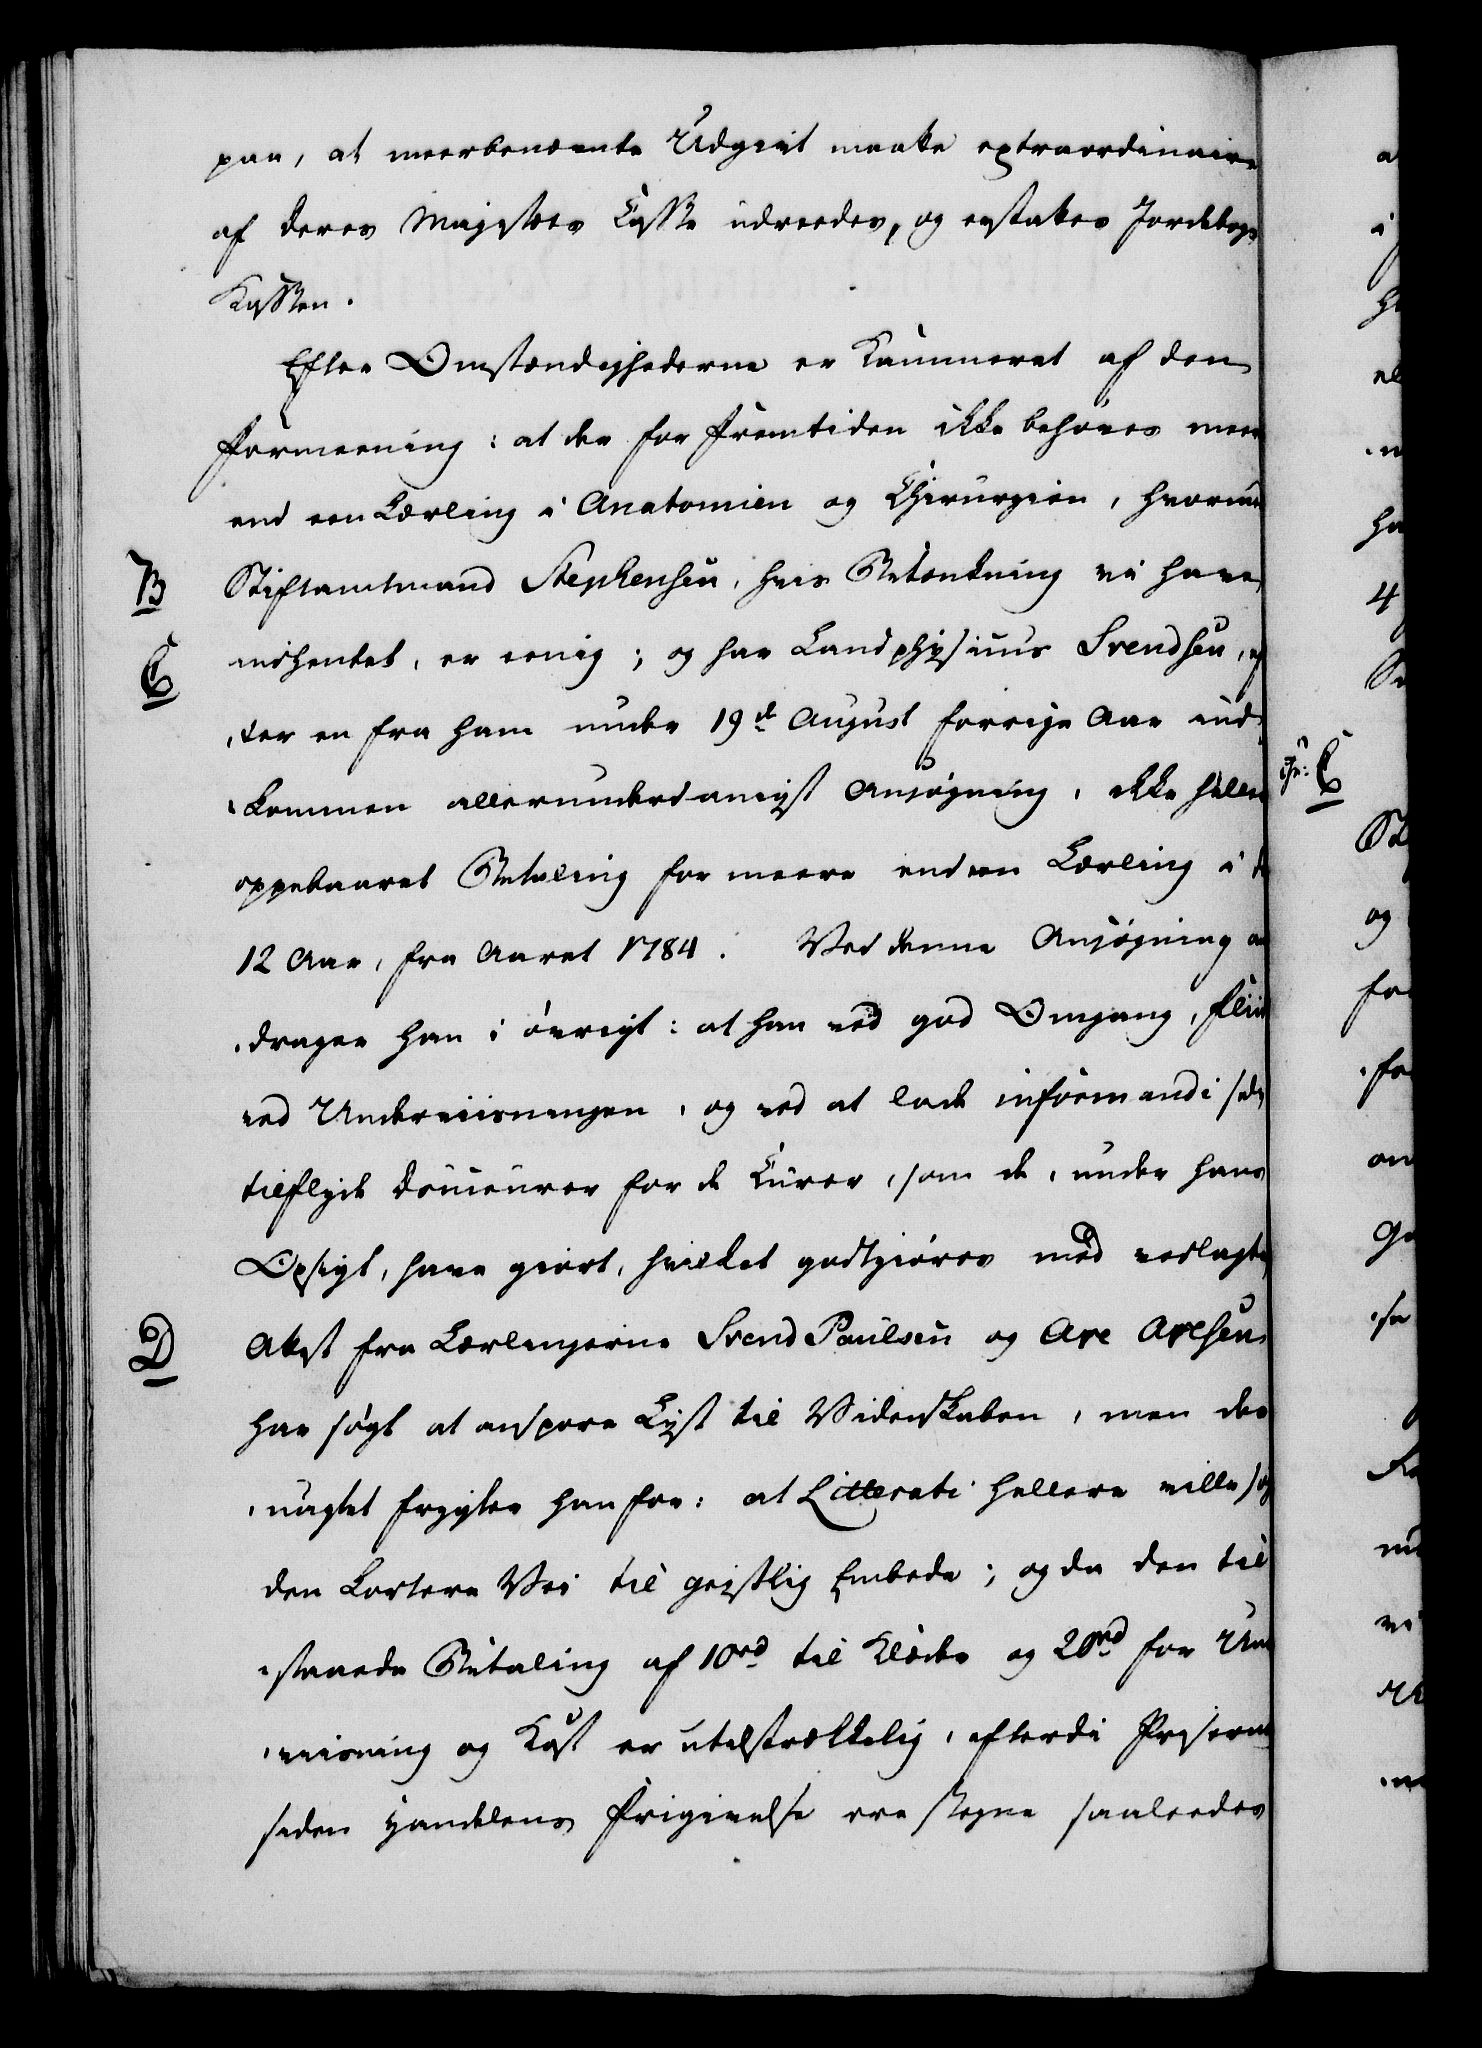 paa, at meerbenævnte Udgivt maatte extraordinaire
af Deres Majestæts Casse udreedes, og erstattes Jordebogs
Kassen.
Efter Omstændighederne er Kammeret af den
Formeening: at der for Fremtiden ikke behøves meer
end een Lærling i Anatomien og Chirurgien, hvorudi
B Stiftamtmand Stephensen, hvis Betænkning vi have
C indhentet, er eenig; og har Landphysicus Svendsen, ef
ter en fra ham under 19de August forrige Aar ind
kommen allerunderdanigst Ansøgning, ikke heller
oppebaaret Betaling for meere end een Lærling i de
12 Aar, fra Aaret 1784. Ved denne Ansøgning an
drager han i øvrigt: at han ved god Omgang, Fliid
ved Underviisningen, og ved at lade informandi selv
tilflyde Douceurer for de Kurer, som de, under hans
Opsigt, have giort, hvilket godtgiøres med vedlagte
D Attest fra Lærlingerne Svend Paulsen og Are Aresen
har søgt at anspore Lyst til Videnskaben, men des
uagtet frygter han for: at Litterati hellere ville søge
den kortere Vei til geistlig Embede; og da den til
staaede Betaling af 10rd til Klæder og 20rd for Un
viisning og Kost er utilstrækkelig, efterdi Priserne
siden Handelens Frigivelse ere stegne saaledes